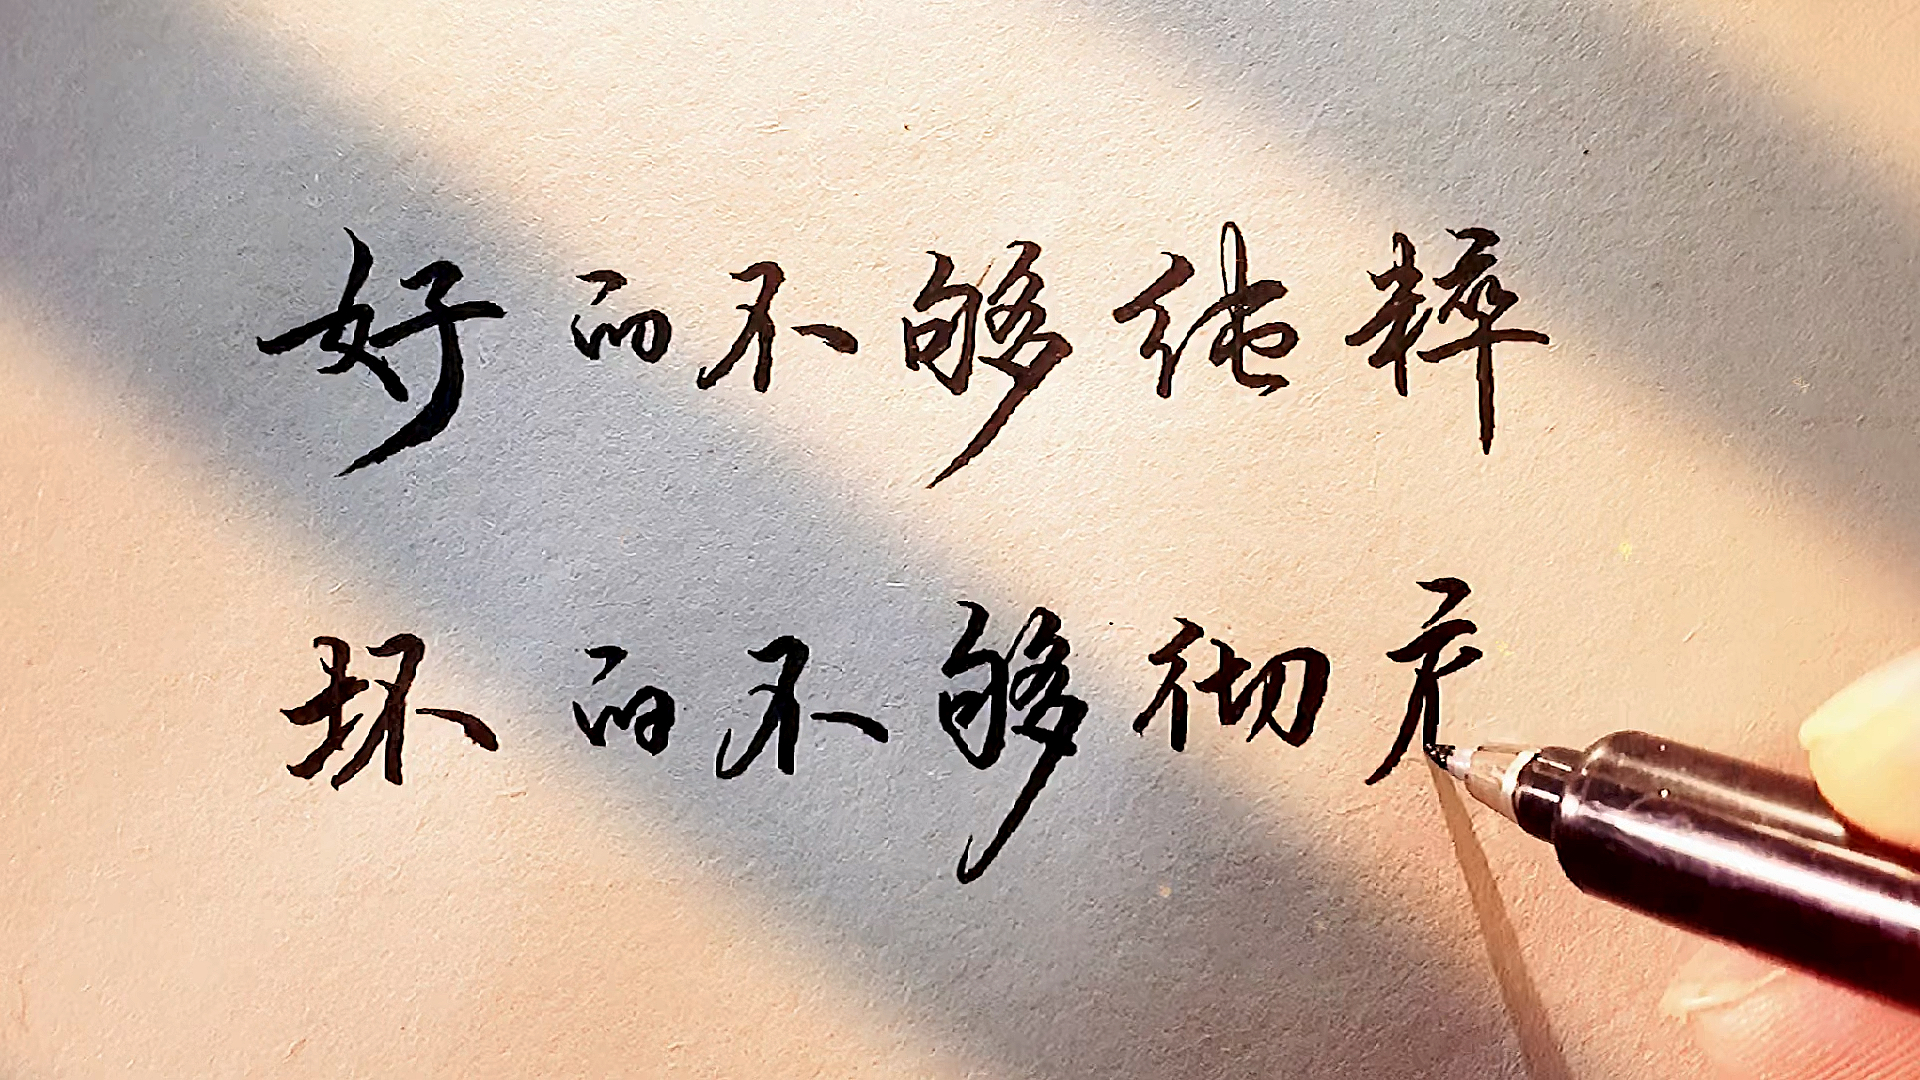 好的不够纯粹
坏的不够彻